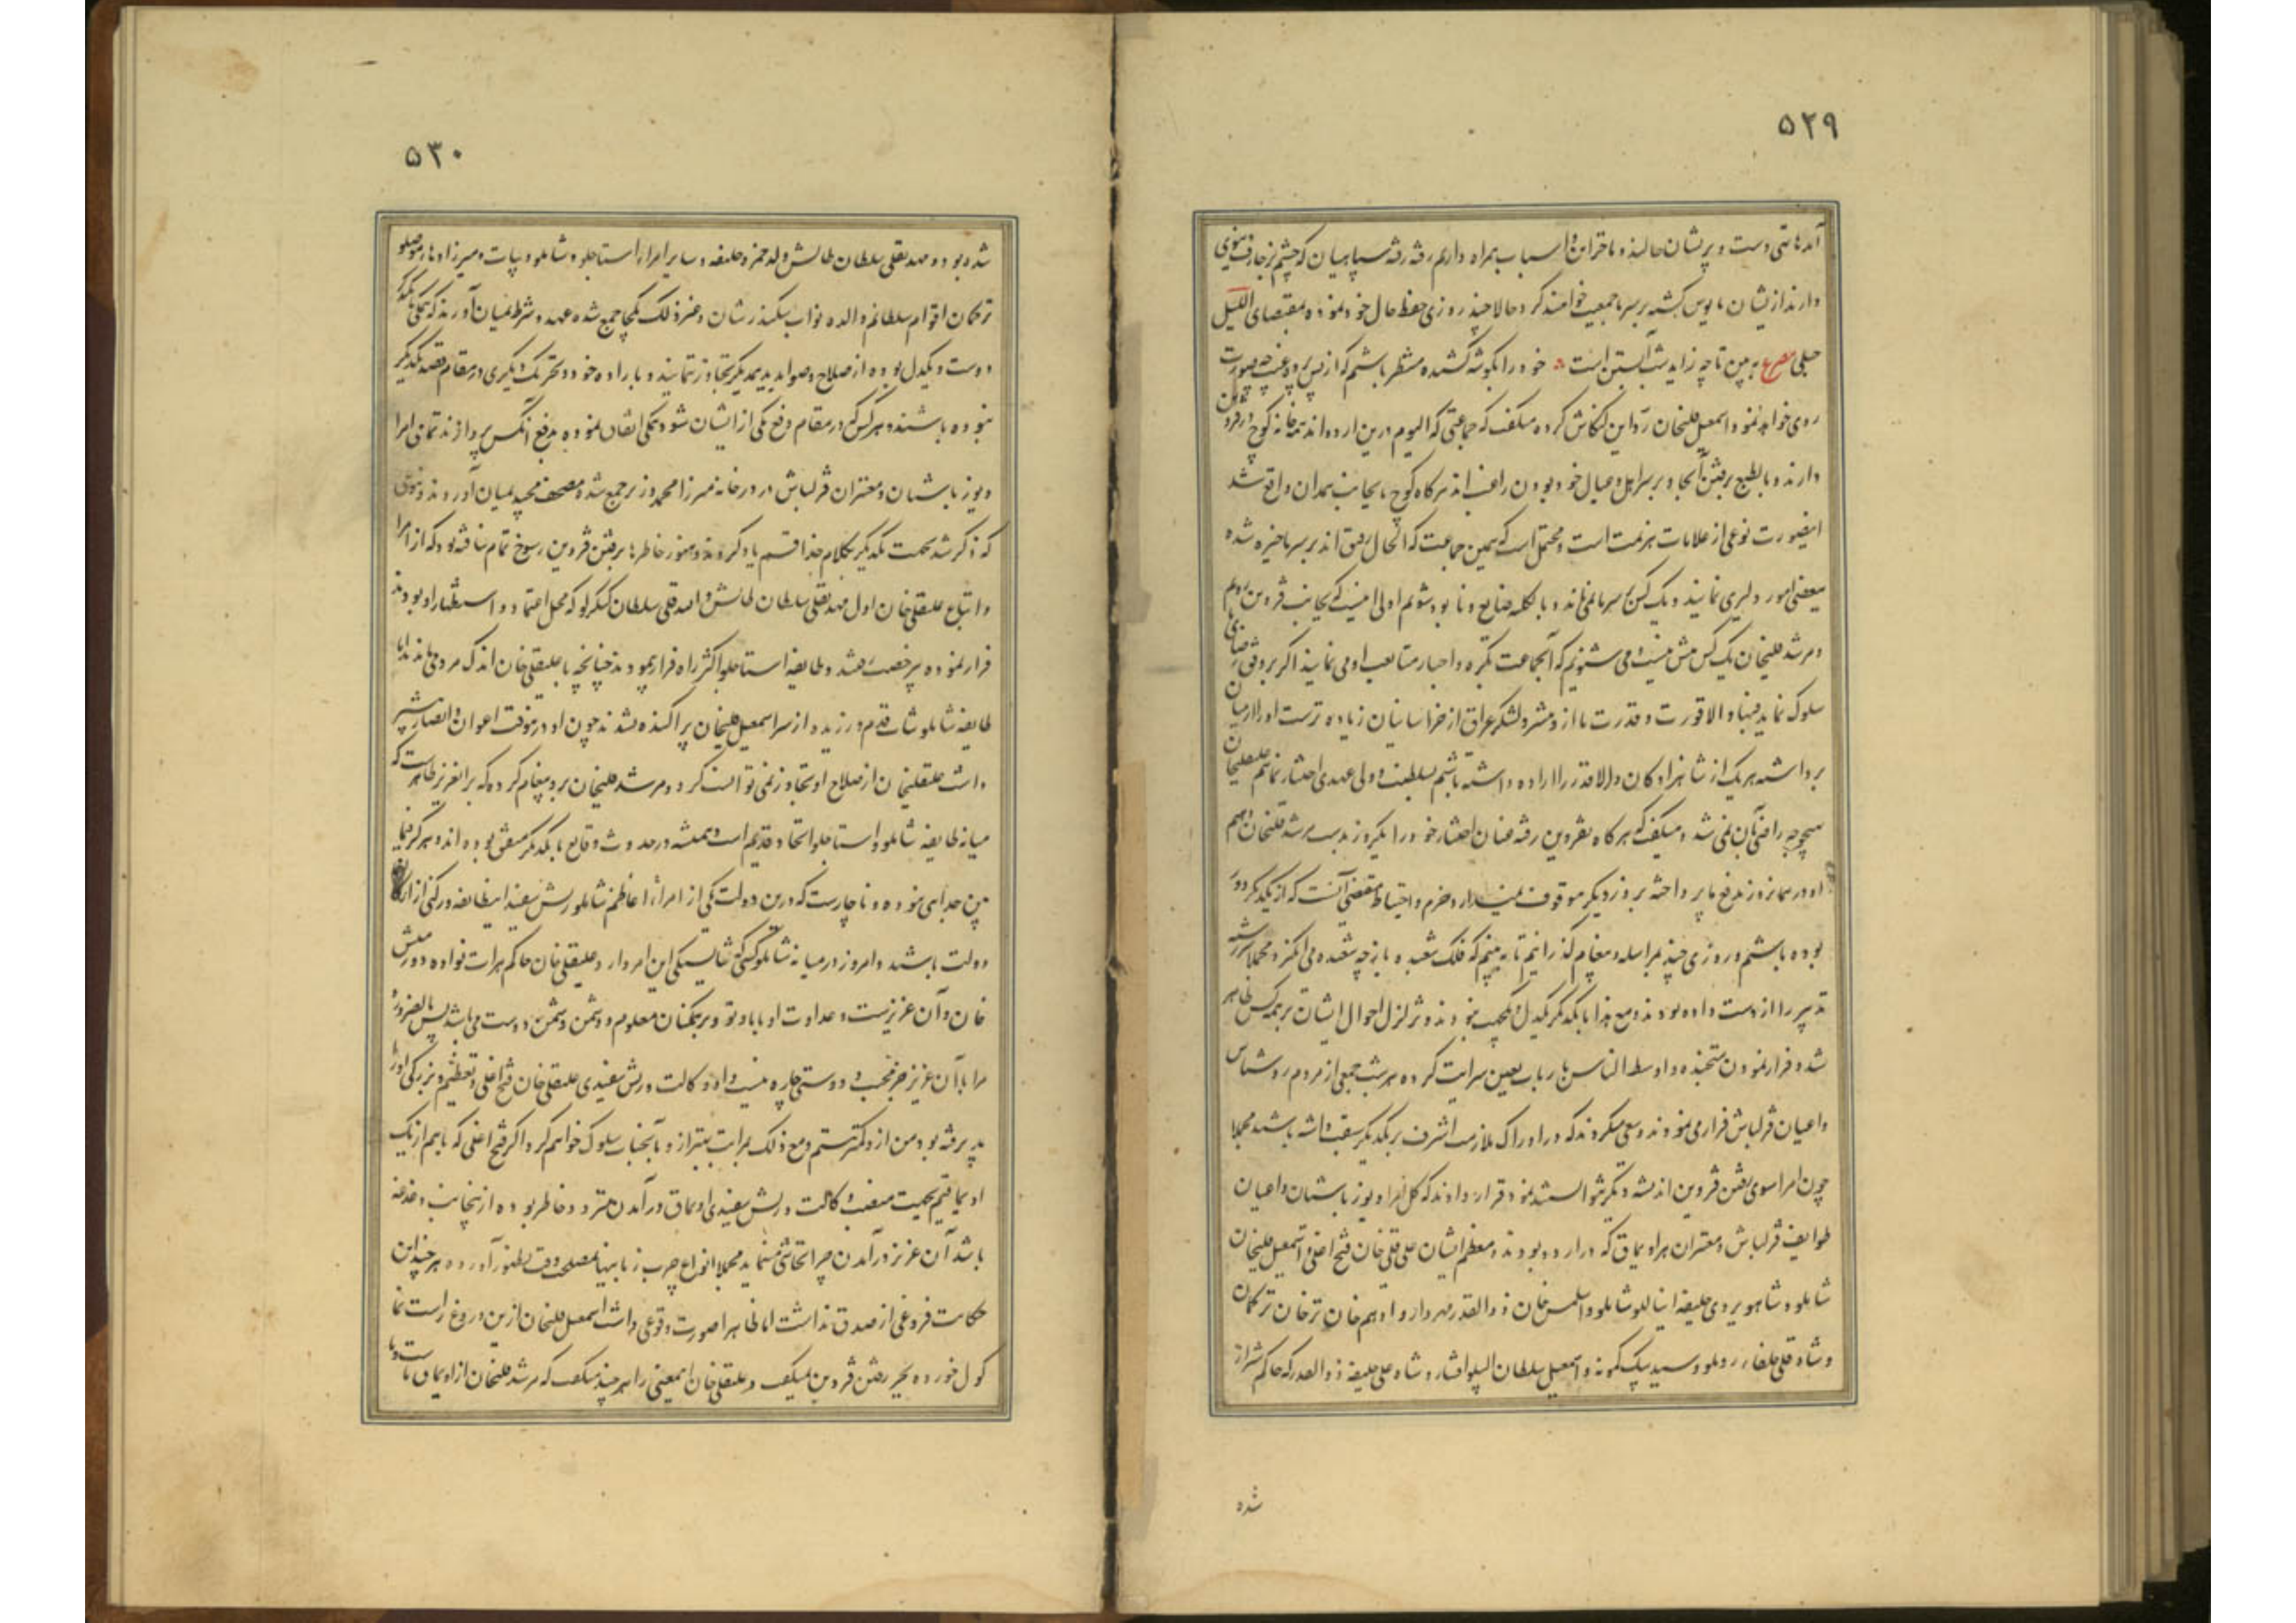 ۵۲۹
آمدها تهی دست و پریشان حالند و ما خزاین و اسباب همراه داریم رفته رفته سپاهیان که چشم بزخارف دنیوی
دارند از ایشان مایوس گشته بر سر ما جمعیت خواهند کرد حالا چند روزی حفظ حال خود نموده بمقتضای اللیل
حبلی مصرع به بین تا چه زاید شب آبستن است خود را بگوشه کشیده منتظر باشیم که از پس پرده غیب چه صورت
روی خواهد نمود اسمعیل قلیخان رد این کنکاش کرده میگفت که جماعتی که الیوم درین اردو اند همه خانه کوچ در قزوین
دارند و بالطبع برفتن آنجا و بر سر اهل و عیال خود بودن راغب اند هرگاه کوچ ما بجانب همدان واقع شد
اینصورت نوعی از علامات هزیمت است و محتمل است که همین جماعت که الحال رفیق اند بر سر ما خیره شده
ببعضی امور دلیری نمایند و یک کس بر سر ما نمی ماند و بالکلیه ضایع و نابود شویم اولی اینست که بجانب قزوین رویم
و مرشد قلیخان یک کس بیش نیست و می شنویم که آنجماعت بکره و اجبار متابعت او می نمایند اگر بر وفق رضای ما
سلوک نماید فبها و الا قورت و قدرت ما از و بیشتر و لشکر عراق از خراسانیان زیاده ترست او را از میان
برداشته هر یک از شاهزادکان والا قدر را اراده داشته باشیم بسلطنت و ولی عهدی اختیار نمائیم علیقلیخان
بهیچوجه راضی بآن نمی شد و میگفت هر گاه بقزوین رفته عنان اختیار خود را یکروز بدست مرشد قلیخان دهیم
او در همان روز بدفع ما پرداخته بروز دیگر موقوف نمیدارد و حزم و احتیاط مقتضی آنست که از یکدیگر دور
بوده باشیم و روزی چند بمراسله و پیغام گذرانیم تا به بینیم که فلک شعبده باز چه شعبده می انگیزد مجملا سررشته
تدبیر را از دست داده بودند و مع هذا با یکدیگر یکدل و یکجهت نبودند و تزلزل احوال ایشان بر همه کس ظاهر
شد و فرار نمودن متجنده و اوسط الناس بارباب تعین سرایت کرده هر شب جمعی از مردم روشناس
و اعیان قزلباش فرار می نمودند و سعی میکردند که در ادراک ملازمت اشرف بر یکدیگر سبقت داشته باشند مجملا
چون امرا سوی رفتن قزوین اندیشه دیگر نتوانستند نمود قرار دادند که کل امرا و یوز باشیان و اعیان
طوایف قزلباش و معتبران هر اویماق که در اردو بودند و معظم ایشان علی قلی خان فتح اغلی و اسمعیل قلیخان
شاملو و شاهویردی خلیفه اینالو شاملو و اسلمس خان ذوالقدر مهردار و ادهم خان ترخان ترکمان
و شاه قلی خلفاء روملو و سید بیک کمونه و اسمعیل سلطان البلو افشار و شاه علی خلیفه ذوالقدر که حاکم شیراز
شده
۵۳۰
شده بود و مهدیقلی سلطان طالش ولد حمزه خلیفه و سایر امرا از استاجلو و شاملو و بیات و میرزادها موصلو
ترکمان اقوام سلطانم والده نواب سکندر شان و غیر ذلک یکجا جمع شده عهد و شرط بمیان آورند که همگی با یکدیگر
دوست و یکدل بوده از صلاح و صوابدید یکدیگر تجاوز ننمایند و باراده خود و تحریک دیگری در مقام قصد یکدیگر
نبوده باشند و هر کس که در مقام دفع یکی از ایشان شود همگی اتفاق نموده بدفع آنکس پردازند تمامی امرا
و یوز باشیان و معتبران قزلباش در در خانه میرزا محمد وزیر جمع شده مصحف مجید بمیان آوردند و بنوعی
که ذکر شد بجهت یکدیگر بکلام خدا قسم یاد کردند و هنوز خاطرها برفتن قزوین رسوخ تمام نیافته بود که از امرا
و اتباع علیقلی خان اول مهدیقلی سلطان طالش و امیرقلی سلطان کنکرلو که محل اعتماد و استظهار او بودند
فرار نموده بیرخصت رفتند و طایفه استاجلو اکثر راه فرار پیمودند چنانچه با علیقلی خان اندک مردمی ماندند اما
طایفه شاملو ثبات قدم ورزیده از سر اسمعیل قلیخان پراکنده نشدند چون او درینوقت اعوان و انصار بیشتر
داشت علیقلیخان از صلاح او تجاوز نمی توانست کرد و مرشد قلیخان برو پیغام کرده که بر انعزیز ظاهرست که
میانه طایفه شاملو و استاجلو اتحاد قدیم است و همیشه در حدوث وقایع با یکدیگر متفق بوده اند و هرگز فیما
بین جدایی نبوده و ناچارست که درین دولت یکی از امراء اعاظم شاملو ریش سفید اینطایفه و رکنی از ارکان
دولت باشد و امروز در میانه شاملو کسی که شایستگی این امر دارد علیقلی خان حاکم هرات نواده دورمیش
خان و آن عزیزست و عداوت او با ما و تو و بر همکنان معلوم و دشمن دشمن دوست می باشد پس بالضروره
مرا با آن عزیز جز محبت و دوستی چاره نیست و او وکالت و ریش سفیدی علیقلی خان فتح اغلی و تعظیم و بزرگی او را
پذیرفته بود من از و کمتر نیستم و مع ذلک بمراتب بهتر از و بآنجناب سلوک خواهم کرد اگر فتح اغلی که با هم از یک
اویماقیم بجهت منصب وکالت و ریش سفیدی اویماق در آمدن متردد خاطر بوده ازینجانب دغدغه
باشد آن عزیز در آمدن چرا تحاشی مینماید مجملا انواع چرب زبانیها بمصلحت وقت بظهور آورده هر چند این
حکایت فروغی از صدق نداشت اما ظاهرا صورت وقوعی داشت اسمعیل قلیخان ازین دروغ راست نما
کول خورده بجز رفتن قزوین نمیگفت و علیقلی خان اسمعنی را هر چند میگفت که مرشد قلیخان از اویماق ماست و با